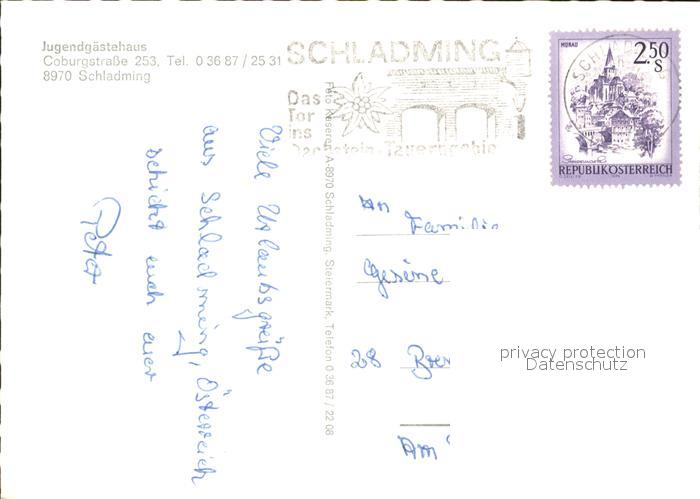 Jugendgästehaus
Coburgstraße 253, Tel. 0 36 87 / 25 31
8970 Schladming
SCHLADMING
Das
Tor
ins
Dachstein-Tauerngebiet
MURAU
2.50
S
REPUBLIK ÖSTERREICH
Foto Kaserer, A-8970 Schladming, Steiermark, Telefon 0 36 87 / 22 08
Viele Urlaubsgrüße
aus Schladming, Österreich
schickt euch euer
Peter
An
Familie
Gesine
28 Brem
Am
privacy protection
Datenschutz